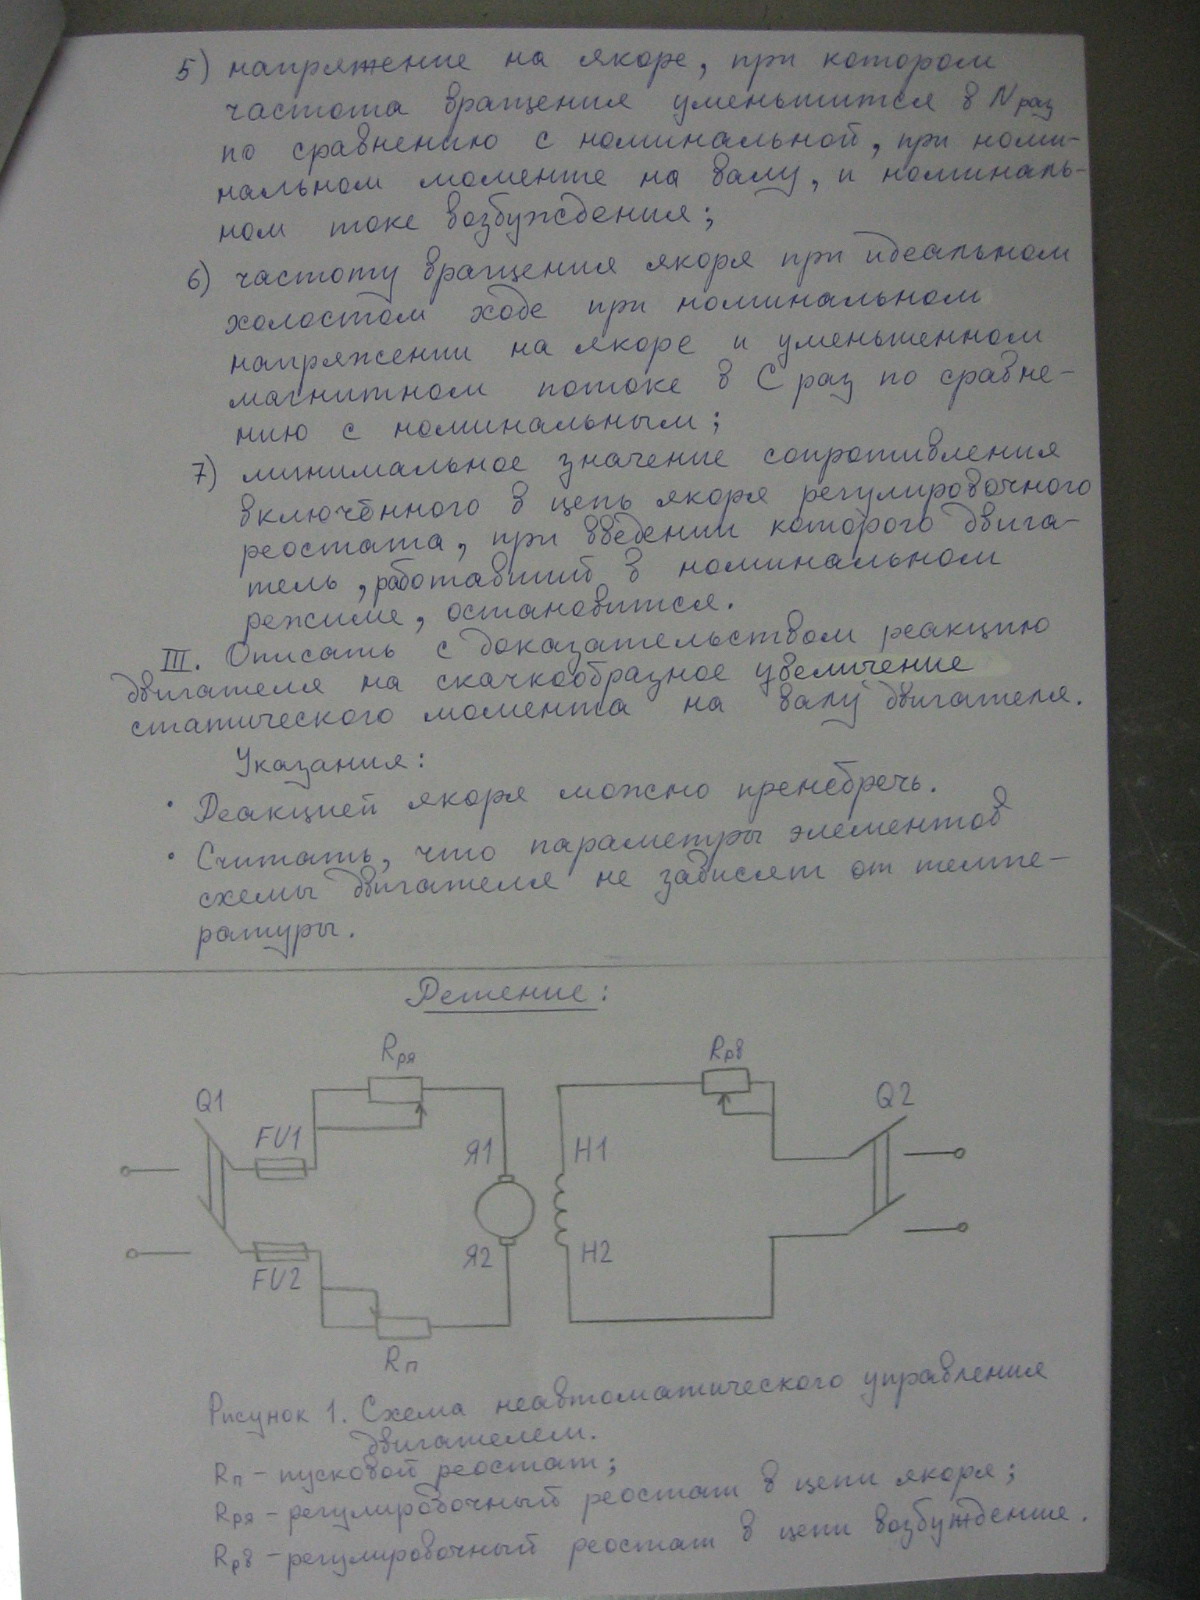 5) напряжение на якоре, при котором
частота вращения уменьшится в N раз
по сравнению с номинальной, при номи-
нальном моменте на валу, и номиналь-
ном токе возбуждения;
6) частоту вращения якоря при идеальном
холостом ходе при номинальном
напряжении на якоре и уменьшенном
магнитном потоке в С раз по сравне-
нию с номинальным;
7) минимальное значение сопротивления
включённого в цепь якоря регулировочного
реостата, при введении которого двига-
тель, работавший в номинальном
режиме, остановится.
III. Описать с доказательством реакцию
двигателя на скачкообразное увеличение
статического момента на валу двигателя.
Указания:
• Реакцией якоря можно пренебречь.
• Считать, что параметры элементов
схемы двигателя не зависят от темпе-
ратуры.
Решение:
Rря Rрв
Q1 Q2
FU1 Я1 Н1
FU2 Я2 Н2
Rп
Рисунок 1. Схема неавтоматического управления
двигателем.
Rп – пусковой реостат;
Rря – регулировочный реостат в цепи якоря;
Rрв – регулировочный реостат в цепи возбуждение.